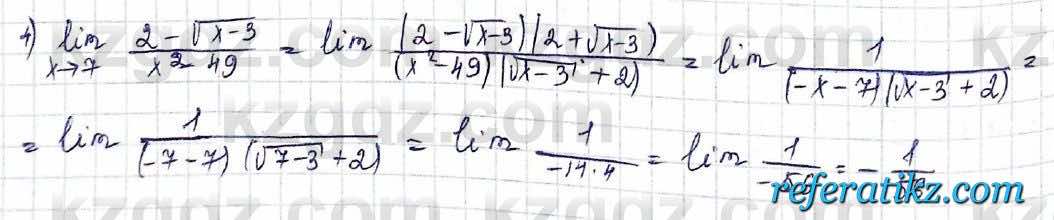 4) lim x→7 (2 - √(x-3)) / (x² - 49) = lim ((2 - √(x-3))(2 + √(x-3))) / ((x² - 49)(√(x-3) + 2)) = lim 1 / ((-x - 7)(√(x-3) + 2)) =
= lim 1 / ((-7 - 7)(√(7-3) + 2)) = lim 1 / (-14 · 4) = lim
referatikz.com